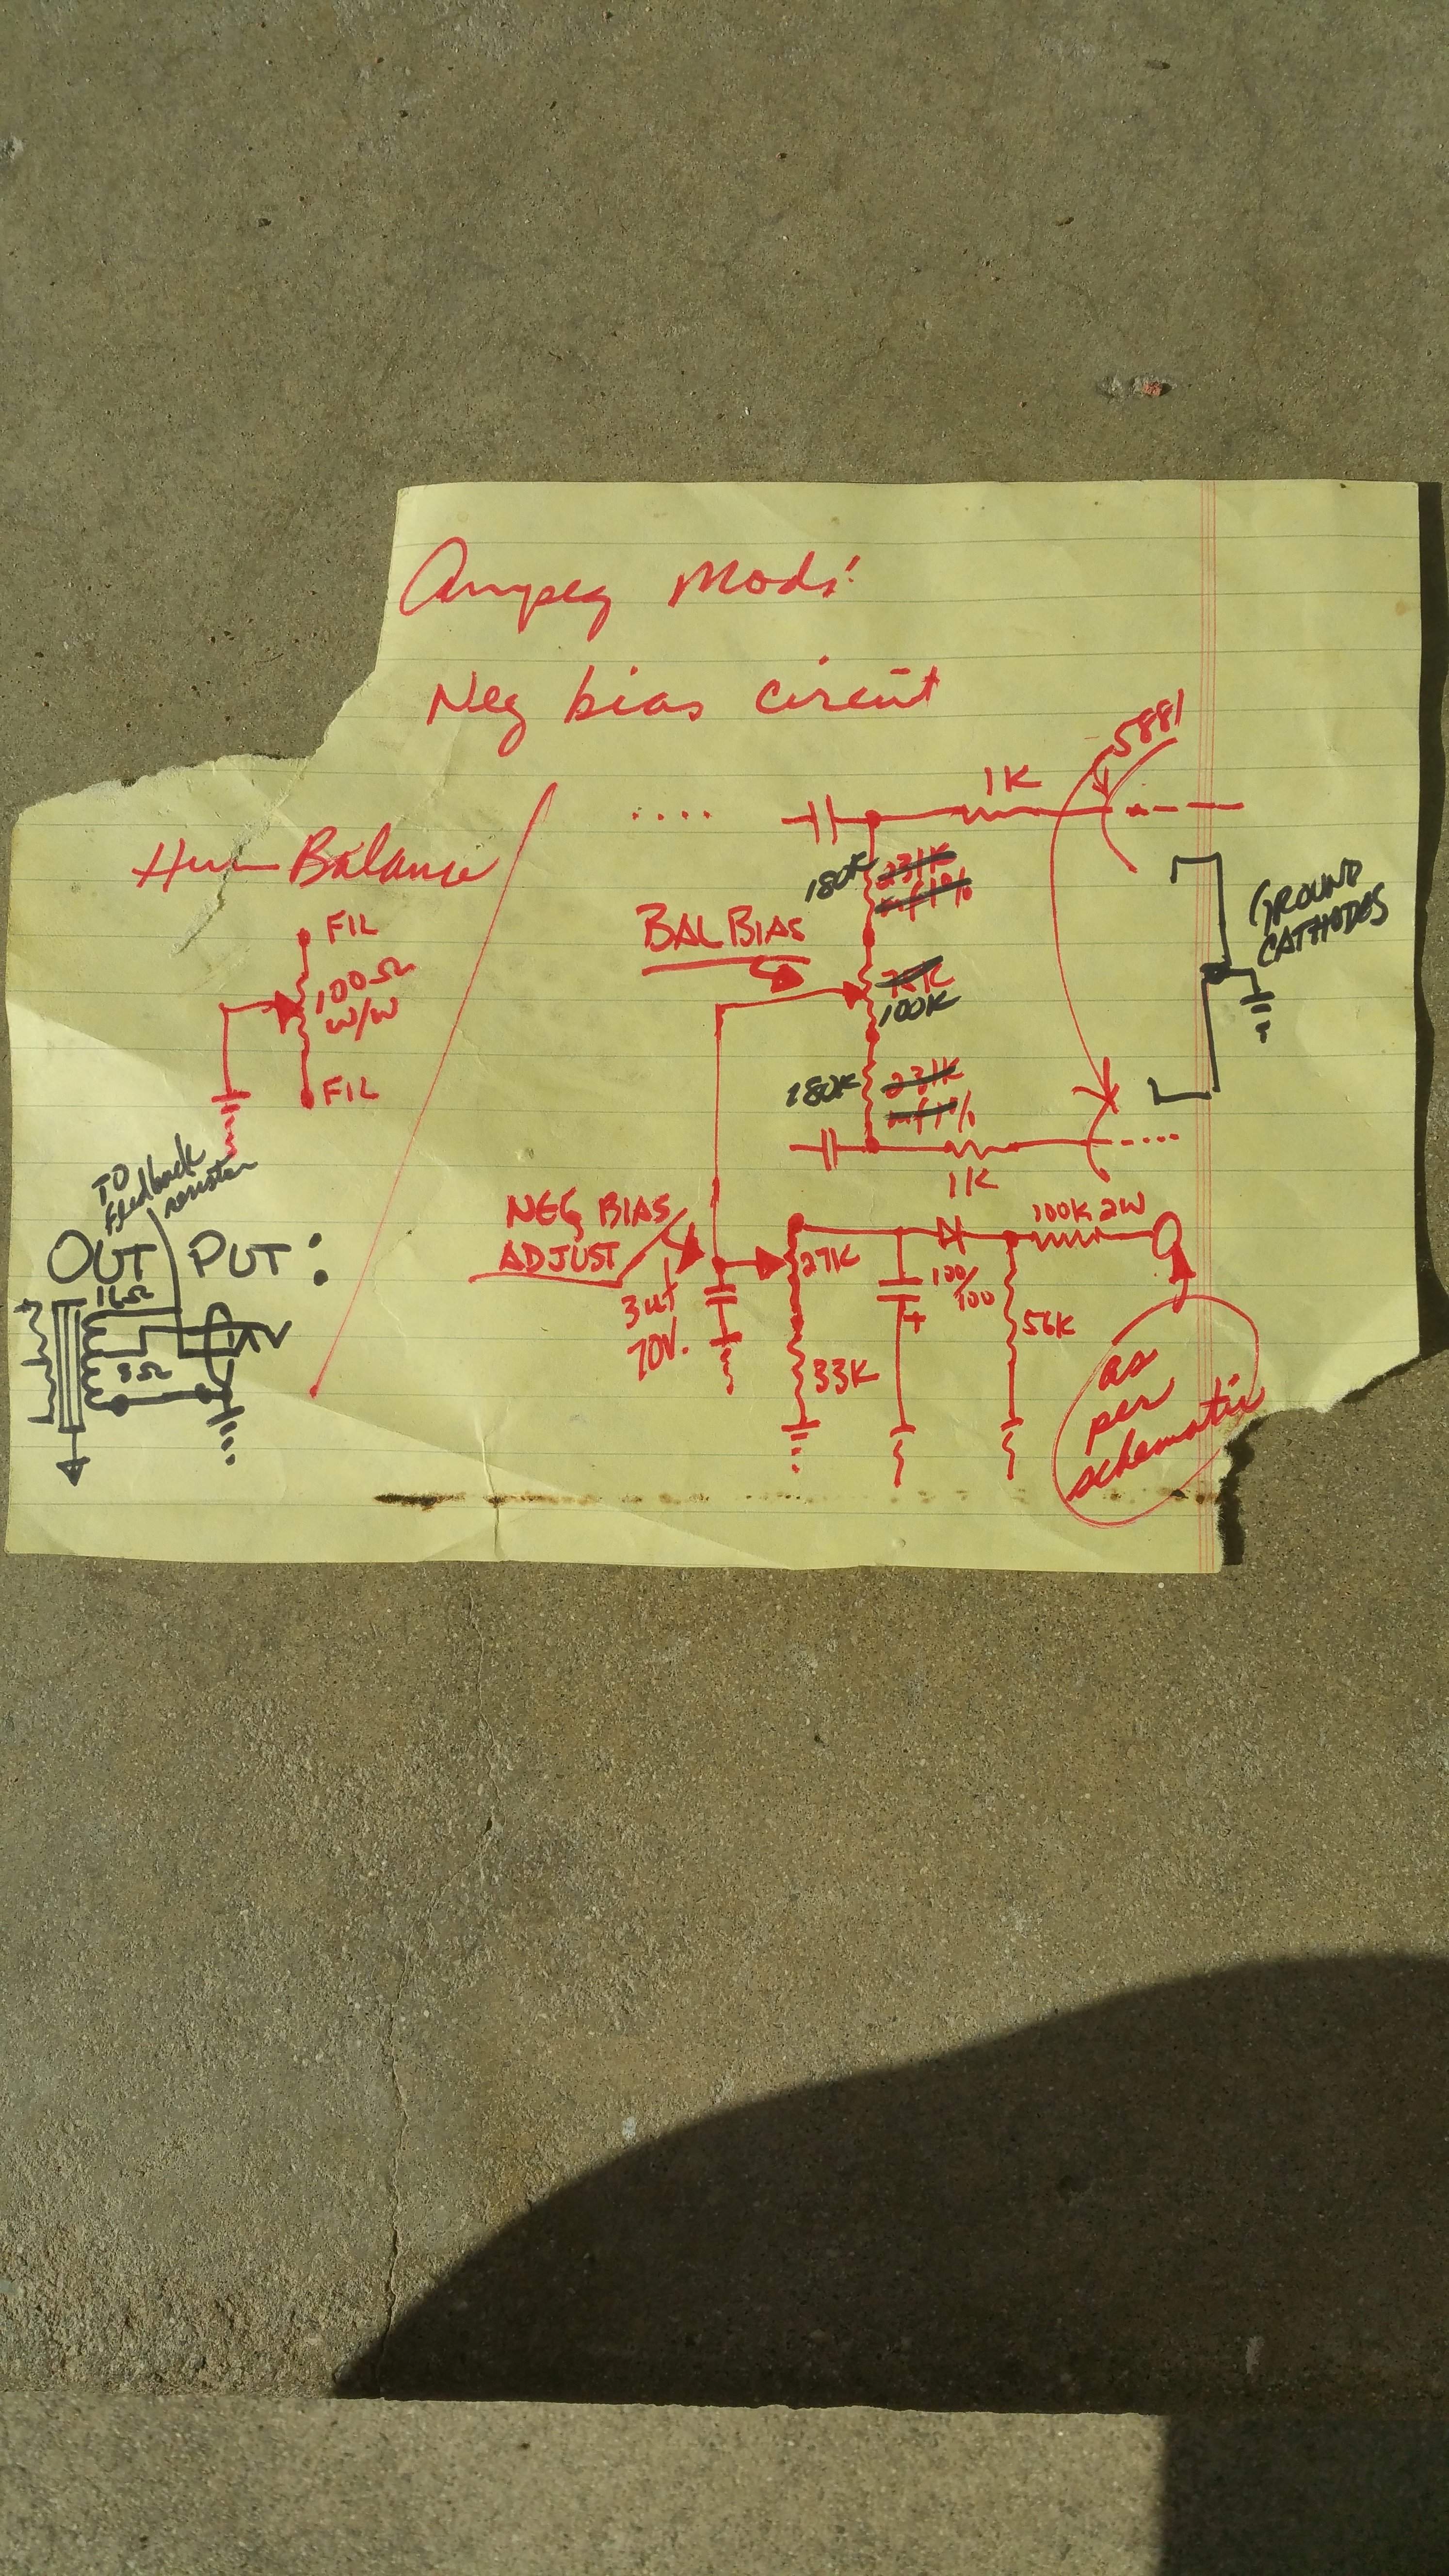 Ampeg Mods:
Neg bias circuit
5881
1K
Hum Balance
180K 231K
BAL BIAS
FIL
100Ω
W/W
100K
GROUND
CATHODES
FIL
180K 231K
1K
TO
feedback
resistor
OUT PUT:
16Ω
8Ω
NEG BIAS
ADJUST
3uf
70V.
27K
33K
100/100
+
56K
100K 2W
as
per
schematic